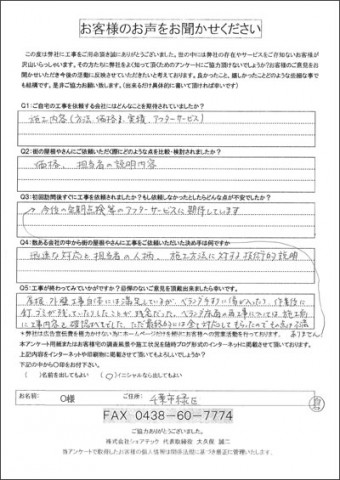 お客様のお声をお聞かせください
この度は弊社に工事をご用命頂き誠にありがとうございました。街の中には弊社の存在やサービスをご存知ないお客様が
沢山いらっしゃいます。その方たちに弊社をよく知って頂くためのアンケートにご協力頂けないでしょうか?お客様のご意見をお
聞かせいただき今後の活動に反映させていただきたいと考えております。良かったこと、嬉しかったことどのような些細な事で
も結構です。是非ご協力お願い致します。(出来るだけ具体的に書いて頂ければ幸いです)
Q1:ご自宅の工事を依頼する会社にはどんなことを期待されていましたか?
施工内容(方法、価格、実績、アフターサービス)
Q2:街の屋根やさんにご依頼いただく際にどのような点を比較・検討されましたか?
価格、担当者の説明内容
Q3:初回訪問後すぐに工事を依頼されましたか?もし依頼しなかったとしたらどんな点が不安でしたか?
今後の定期点検等のアフターサービスに期待しています
Q4:数ある会社の中から街の屋根やさんに工事をご依頼いただいた決め手は何ですか
迅速な対応と担当者の人柄、施工方法に対する技術的説明
Q5:工事が終わってみていかがですか?忌憚のないご意見を頂戴出来ましたら幸いです。
屋根、外壁工事自体には満足しているが、ベランダ手すりに傷が入ったり、作業後に
釘、ゴミが残っていたりしたことが残念だった。ベランダ床面の再工事については、施工前
に工事内容を確認すべきでした。ただ最終的には全て対応してもらったので不満はありません
※弊社は広告宣伝費を極力かけない為にホームページだけを頼りにお客様への営業活動を行っております。
本アンケート用紙またはお客様宅の調査風景や施工状況を随時ブログ形式のインターネットに掲載させて頂いております。
上記内容をインターネットや印刷物に掲載させて頂いてもよろしいでしょうか?
下記の中から○印をお付け下さい。
( )名前を出してもよい (○)イニシャルなら出してもよい
お名前: O様 ご住所: 千葉市緑区
FAX 0438-60-7774
ご協力ありがとうございました。
株式会社シェアテック 代表取締役 大久保 誠二
当アンケートで取得したお客様の個人情報は関係法規に基づき適正に管理いたします。